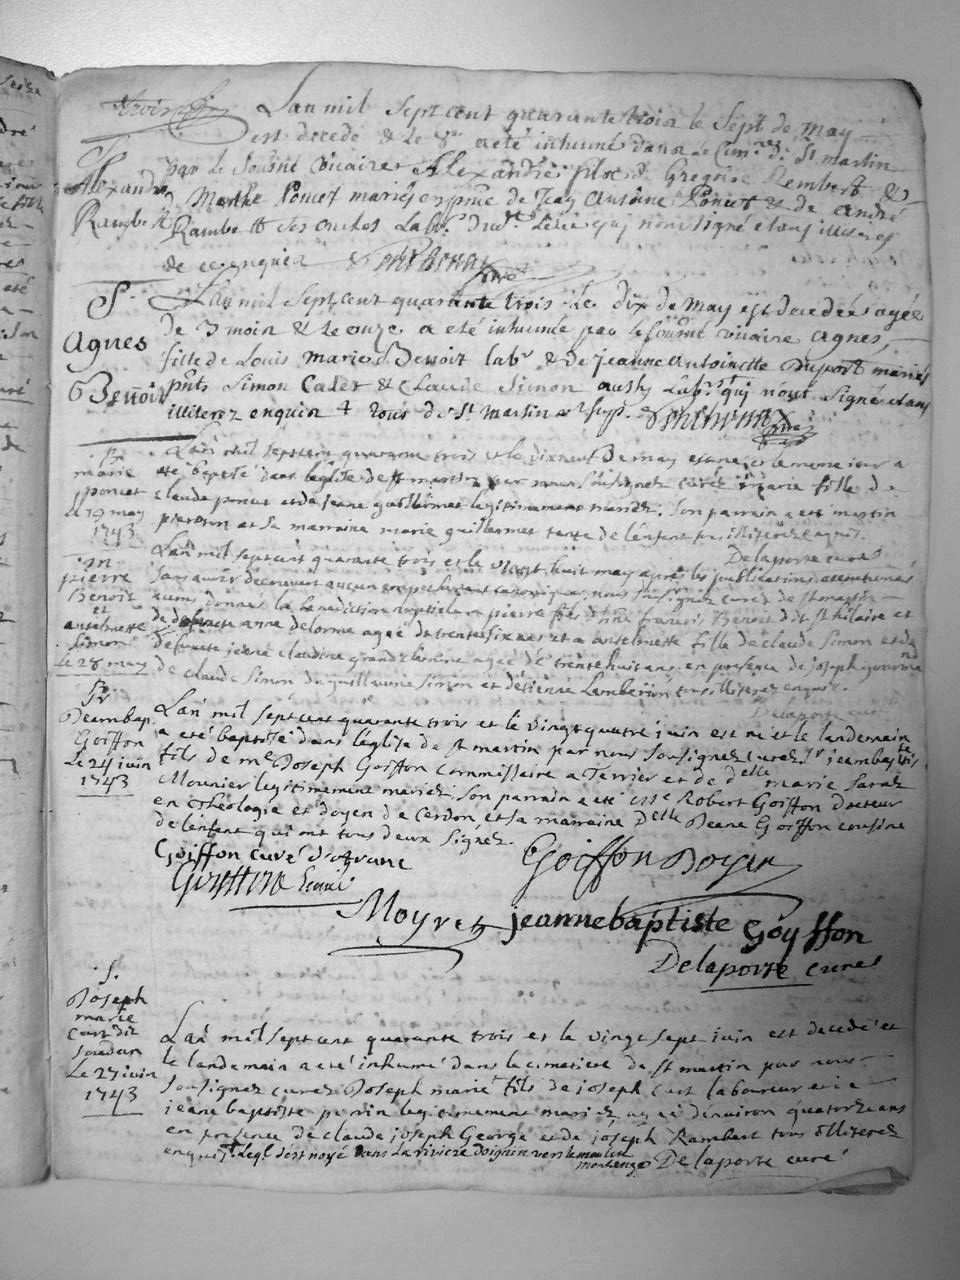 trois
Lan mil sept cent quarante trois le sept de may
est decede & le 8e a eté inhumé dans le Cim.re de St martin
par le Sousné vicaire Alexandre fils de Gregoire Rembert &
Alexandre
Marthe Poncet mariés en pnce de Jean Antoine Poncet & de andré
Rambert
Rambert ses oncles Lab.rs qui nont signé etans illiterez
de ce enquis
S.
Lan mil sept cent quarante trois le dix de May est decedée agée
de 3 mois & le onze a eté inhumée par le sousné vicaire agnes,
Agnes
fille de Louis marie Benoit lab.r & de jeanne Antoinette Duport mariés
Benoit
pnts Simon Cadet & Claude Simon aussy Lab.rs qui nont Signé etans
illiterez enquis + tous de St Martin
B
Lan mil septcent quarante trois et le dixneuf de may est née et le meme iour a
marie
eté baptisé dans leglise de st martin par nous sousignez curez marie fille de
poncet
claude poncet et de jeane guillermet legitimement mariez. Son parrain a eté martin
Le 19 may
pierron et sa marraine marie guillermet tante de lenfant tous illiterez enquis.
1743
Delaporte curé
m
Lan mil sept cent quarante trois et le vingt huit may apres les publications accoutumés
pierre
sans avoir decouvert aucun empechement canonique, nous sousignez curez de st martin
Benoit
avons donner la benediction nuptiale a pierre fils de feu francois Benoit de st hilaire et
et
de defuncte anne delorme agée de trente six ans et a antelmette fille de claude simon et de
antelmette
simon
defuncte jeane claudine grand clement agée de trente huit ans en presence de joseph
le 28 may
de claude simon de guillaume simon et destienne Lambert tous illiterez enquis.
Delaporte curé
B
Lan mil sept cent quarante trois et le vingt quatre juin est né et le landemain
Jean bap.
a eté baptisé dans leglise de st martin par nous sousignez curez Sr jean baptiste
Goiffon
fils de mr Joseph Goiffon Commissaire a Terrier et de delle marie Sarah
Le 24 juin
Mounier legitimement mariez. Son parrain a eté mre Robert Goiffon Docteur
1743
en Théologie et doyen de Cerdon et sa marraine Delle Jeane Goiffon cousine
de lenfant qui ont tous deux signez.
Goiffon curé
Goiffon Doyen
Goyffon
Moyret jeannebaptiste Goyffon
Delaporte curé
.S.
Joseph
marie
Curt dit
Le 27 juin
1743
Lan mil sept cent quarante trois et le vingt sept juin est decedé et
le landemain a eté inhumé dans le cimetiere de st martin par nous
sousignez curez Joseph marie fils de joseph Curt laboureur et de
jeane baptiste perrin legitimement mariez agé denviron quatorze ans
en presence de claude joseph George et de joseph Rambert tous illiterez
enquis + leql s'est noyé dans La riviere doignin vers le moulin
Delaporte curé